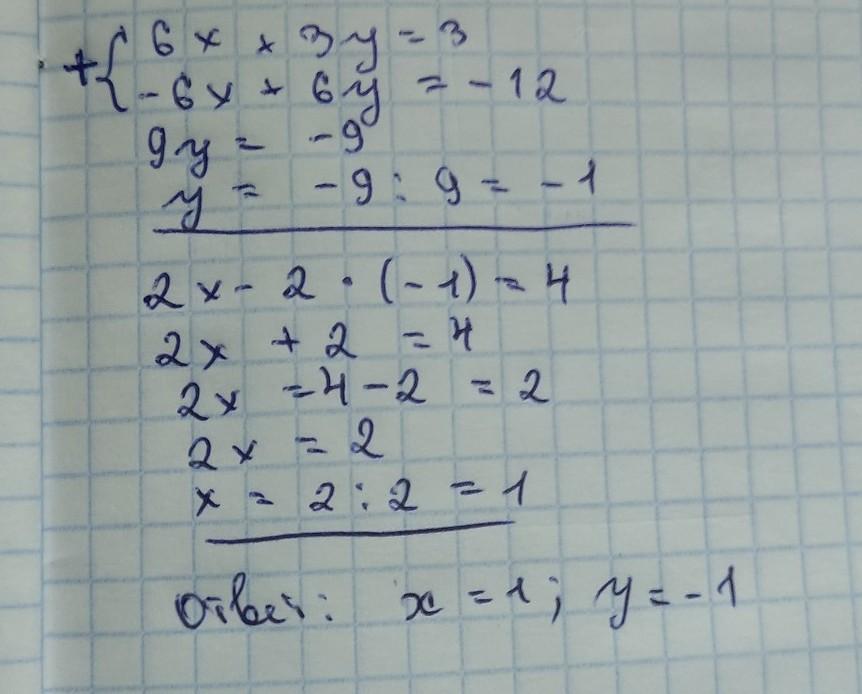 +{ 6x + 3y = 3
-6x + 6y = -12
9y = -9
y = -9 : 9 = -1
2x - 2 · (-1) = 4
2x + 2 = 4
2x = 4 - 2 = 2
2x = 2
x = 2 : 2 = 1
Ответ: x = 1; y = -1